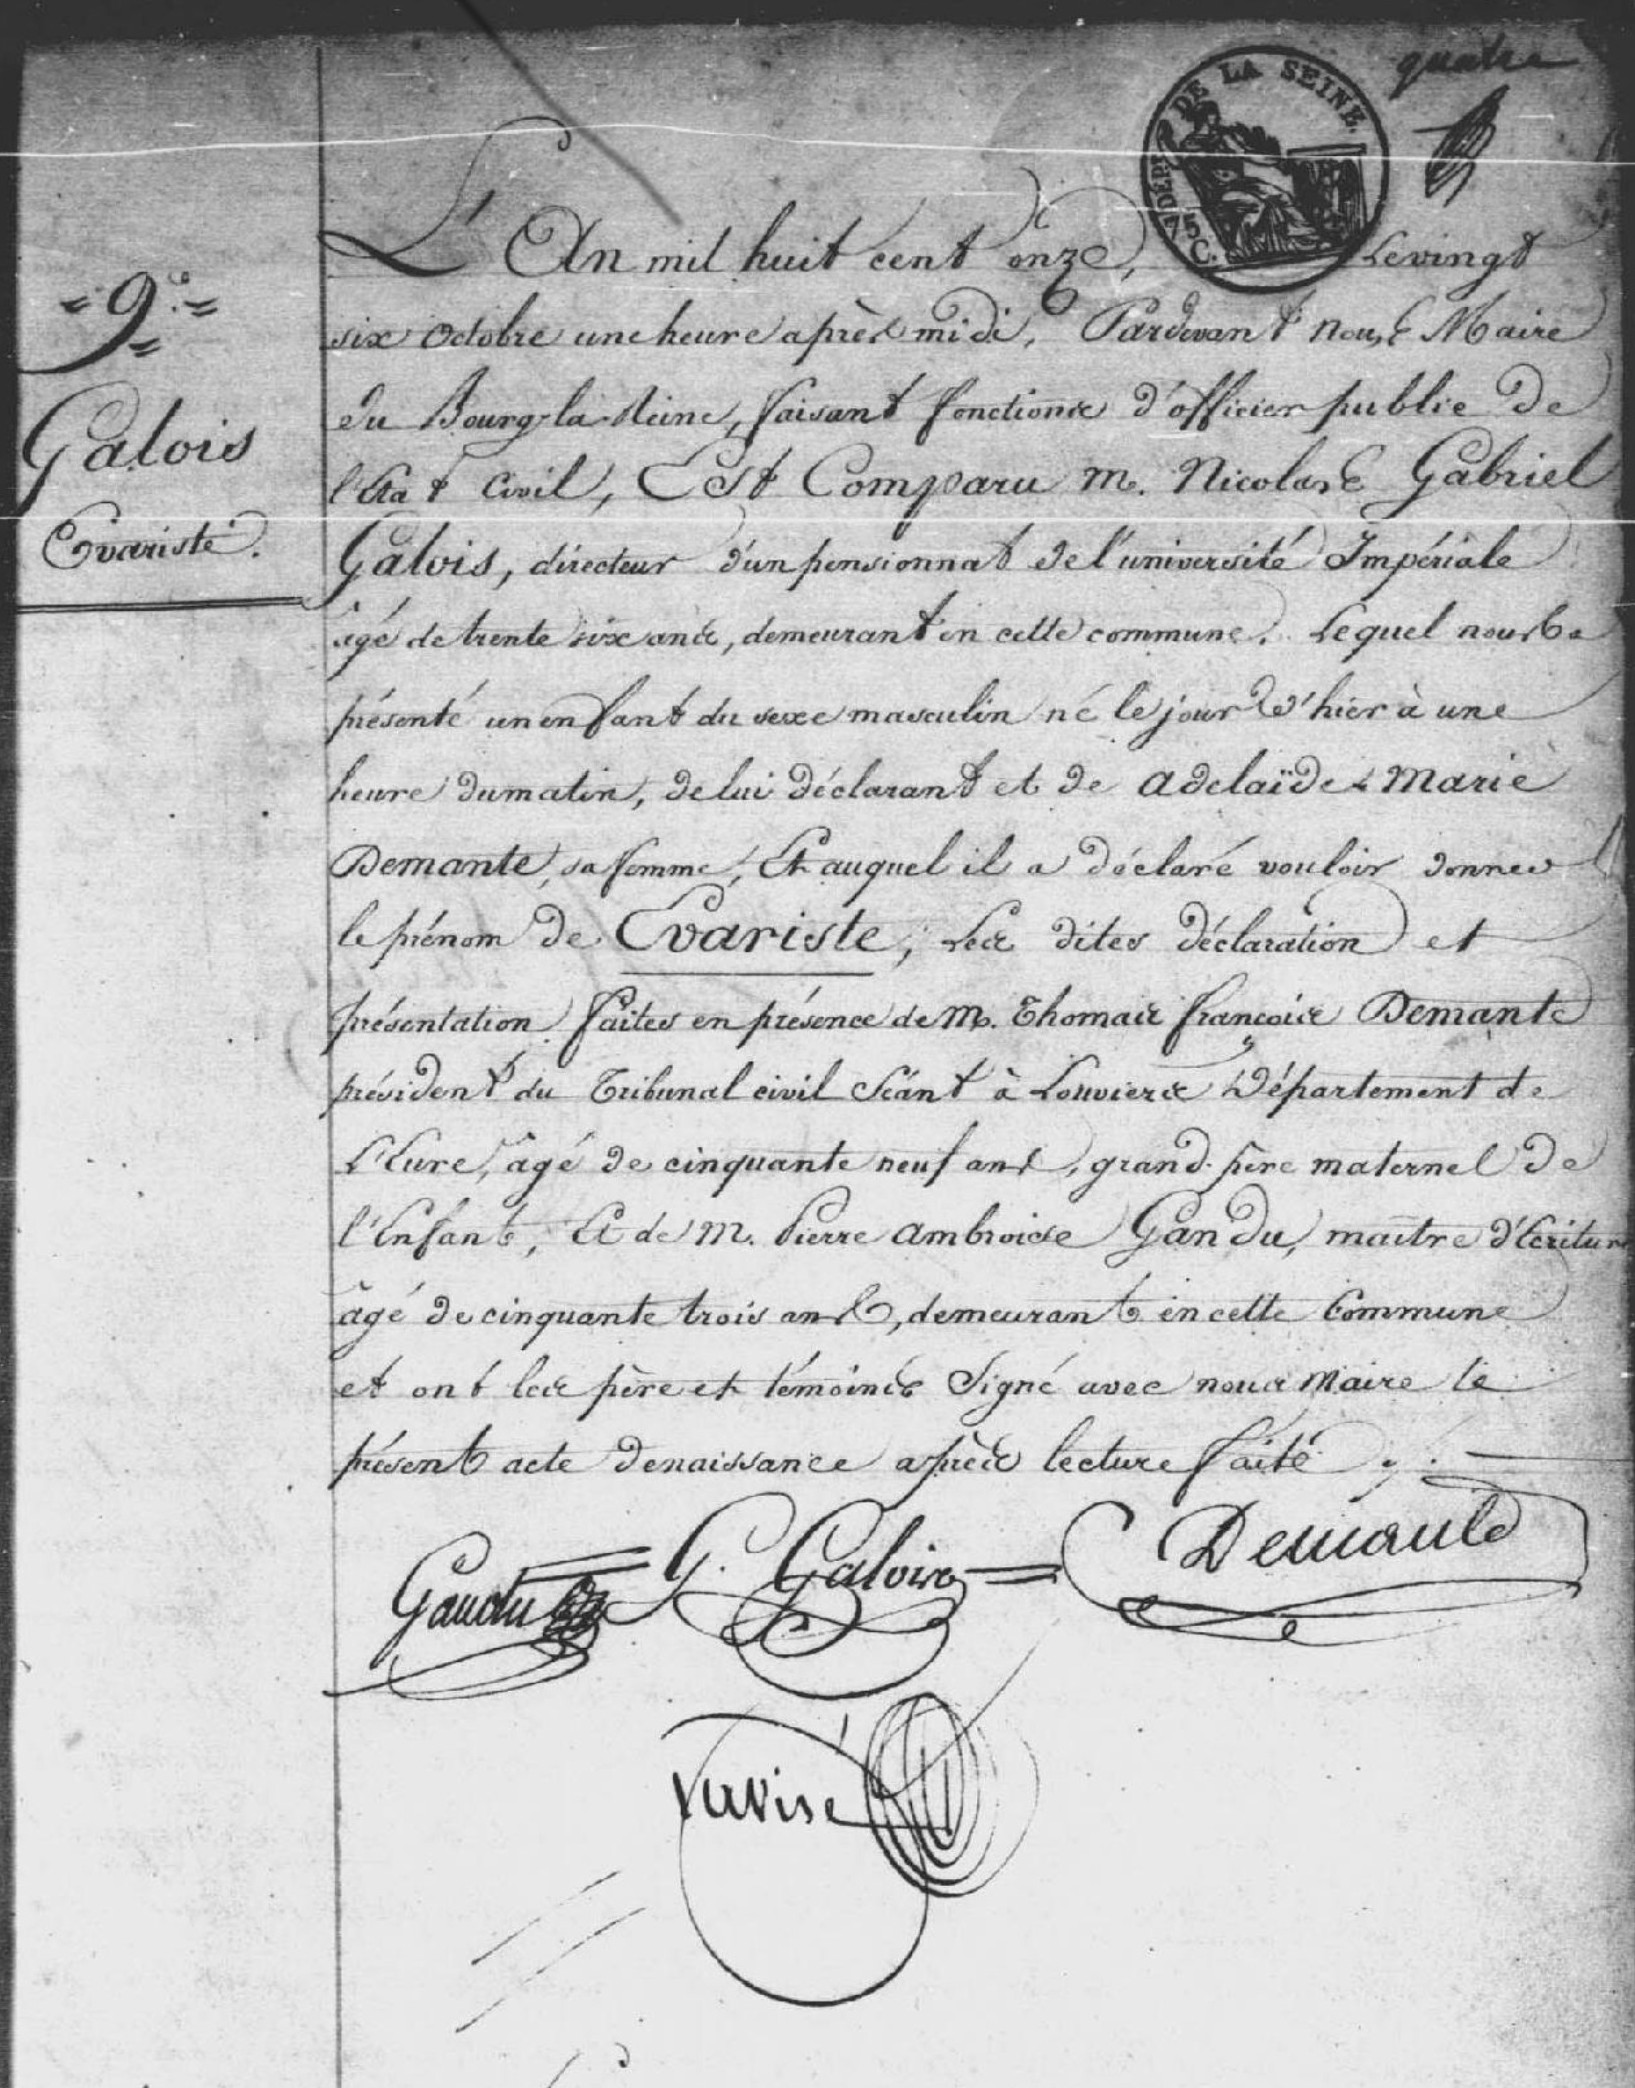 quatre
DEPT. DE LA SEINE.
75 C.
9e.
Galois
Evariste.
L'An mil huit cent onze, Le vingt
six Octobre une heure après midi, Pardevant nous Maire
du Bourg-la-Reine, faisant fonctions d'officier public de
l'Etat Civil, Est Comparu M. Nicolas Gabriel
Galois, directeur d'un pensionnat de l'université Impériale
âgé de trente six ans, demeurant en cette commune. Lequel nous a
présenté un enfant du sexe masculin né le jour d'hier à une
heure du matin, de lui déclarant et de Adelaïde Marie
Demante, sa femme, Et auquel il a déclaré vouloir donner
le prénom de Evariste, Les dites déclaration et
présentation faites en présence de M. Thomas françois Demante
président du Tribunal civil Séant à Louviers Département de
L'Eure, âgé de cinquante neuf ans, grand-père maternel de
l'Enfant, Et de M. Pierre Ambroise Gandu, maître d'Ecriture
âgé de cinquante trois ans, demeurant en cette Commune
et ont les père et témoins Signé avec nous Maire le
présent acte de naissance après lecture faite.
Gandu G. Galois Demante